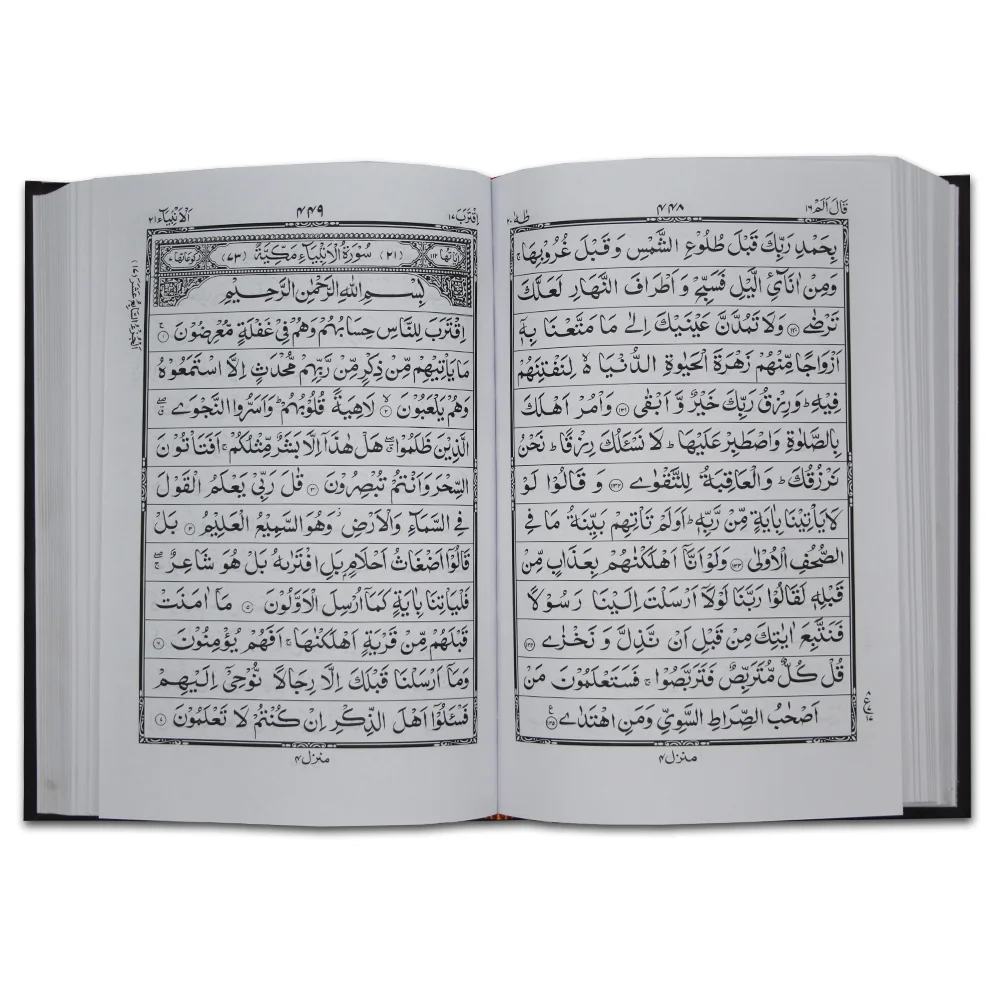 قَالَ اَلَمْ ۱۶ ۴۴۸ طٰهٰ ۲۰
بِحَمْدِ رَبِّكَ قَبْلَ طُلُوْعِ الشَّمْسِ وَ قَبْلَ غُرُوْبِهَا ۚ
وَمِنْ اٰنَآئِ الَّيْلِ فَسَبِّحْ وَ اَطْرَافَ النَّهَارِ لَعَلَّكَ
تَرْضٰى ﴿۱۳۰﴾ وَلَا تَمُدَّنَّ عَيْنَيْكَ اِلٰى مَا مَتَّعْنَا بِهٖٓ
اَزْوَاجًا مِّنْهُمْ زَهْرَةَ الْحَيٰوةِ الدُّنْيَا ۵ لِنَفْتِنَهُمْ
فِيْهِ ؕ وَرِزْقُ رَبِّكَ خَيْرٌ وَّ اَبْقٰى ﴿۱۳۱﴾ وَاْمُرْ اَهْلَكَ
بِالصَّلٰوةِ وَ اصْطَبِرْ عَلَيْهَا ؕ لَا نَسْئَلُكَ رِزْقًا ؕ نَحْنُ
نَرْزُقُكَ ؕ وَالْعَاقِبَةُ لِلتَّقْوٰى ﴿۱۳۲﴾ وَ قَالُوْا لَوْ
لَا يَاْتِيْنَا بِاٰيَةٍ مِّنْ رَّبِّهٖ ؕ اَوَلَمْ تَاْتِهِمْ بَيِّنَةُ مَا فِى
الصُّحُفِ الْاُوْلٰى ﴿۱۳۳﴾ وَلَوْ اَنَّاۤ اَهْلَكْنٰهُمْ بِعَذَابٍ مِّنْ
قَبْلِهٖ لَقَالُوْا رَبَّنَا لَوْلَاۤ اَرْسَلْتَ اِلَيْنَا رَسُوْلًا
فَنَتَّبِعَ اٰيٰتِكَ مِنْ قَبْلِ اَنْ نَّذِلَّ وَ نَخْزٰى ﴿۱۳۴﴾
قُلْ كُلٌّ مُّتَرَبِّصٌ فَتَرَبَّصُوْا ۚ فَسَتَعْلَمُوْنَ مَنْ
اَصْحٰبُ الصِّرَاطِ السَّوِيِّ وَمَنِ اهْتَدٰى ﴿۱۳۵﴾
منزل ۴
اِقْتَرَبَ ۱۷ ۴۴۹ اَلْاَنْۢبِيَآء ۲۱
اٰيَاتُهَا ۱۱۲ (۲۱) سُوْرَةُ الْاَنْۢبِيَآءِ مَكِّيَّةٌ (۷۳) رُكُوْعَاتُهَا ۷
بِسْمِ اللّٰهِ الرَّحْمٰنِ الرَّحِيْمِ
اِقْتَرَبَ لِلنَّاسِ حِسَابُهُمْ وَهُمْ فِىْ غَفْلَةٍ مُّعْرِضُوْنَ ﴿۱﴾
مَا يَاْتِيْهِمْ مِّنْ ذِكْرٍ مِّنْ رَّبِّهِمْ مُّحْدَثٍ اِلَّا اسْتَمَعُوْهُ
وَهُمْ يَلْعَبُوْنَ ﴿۲﴾ لَاهِيَةً قُلُوْبُهُمْ ؕ وَاَسَرُّوا النَّجْوَى
الَّذِيْنَ ظَلَمُوْا هَلْ هٰذَاۤ اِلَّا بَشَرٌ مِّثْلُكُمْ ۚ اَفَتَاْتُوْنَ
السِّحْرَ وَاَنْتُمْ تُبْصِرُوْنَ ﴿۳﴾ قٰلَ رَبِّىْ يَعْلَمُ الْقَوْلَ
فِى السَّمَآءِ وَالْاَرْضِ وَهُوَ السَّمِيْعُ الْعَلِيْمُ ﴿۴﴾ بَلْ
قَالُوْۤا اَضْغَاثُ اَحْلَامٍۭ بَلِ افْتَرٰىهُ بَلْ هُوَ شَاعِرٌ
فَلْيَاْتِنَا بِاٰيَةٍ كَمَاۤ اُرْسِلَ الْاَوَّلُوْنَ ﴿۵﴾ مَاۤ اٰمَنَتْ
قَبْلَهُمْ مِّنْ قَرْيَةٍ اَهْلَكْنٰهَا ۚ اَفَهُمْ يُؤْمِنُوْنَ ﴿۶﴾
وَمَاۤ اَرْسَلْنَا قَبْلَكَ اِلَّا رِجَالًا نُّوْحِىْۤ اِلَيْهِمْ
فَسْئَلُوْۤا اَهْلَ الذِّكْرِ اِنْ كُنْتُمْ لَا تَعْلَمُوْنَ ﴿۷﴾
منزل ۴